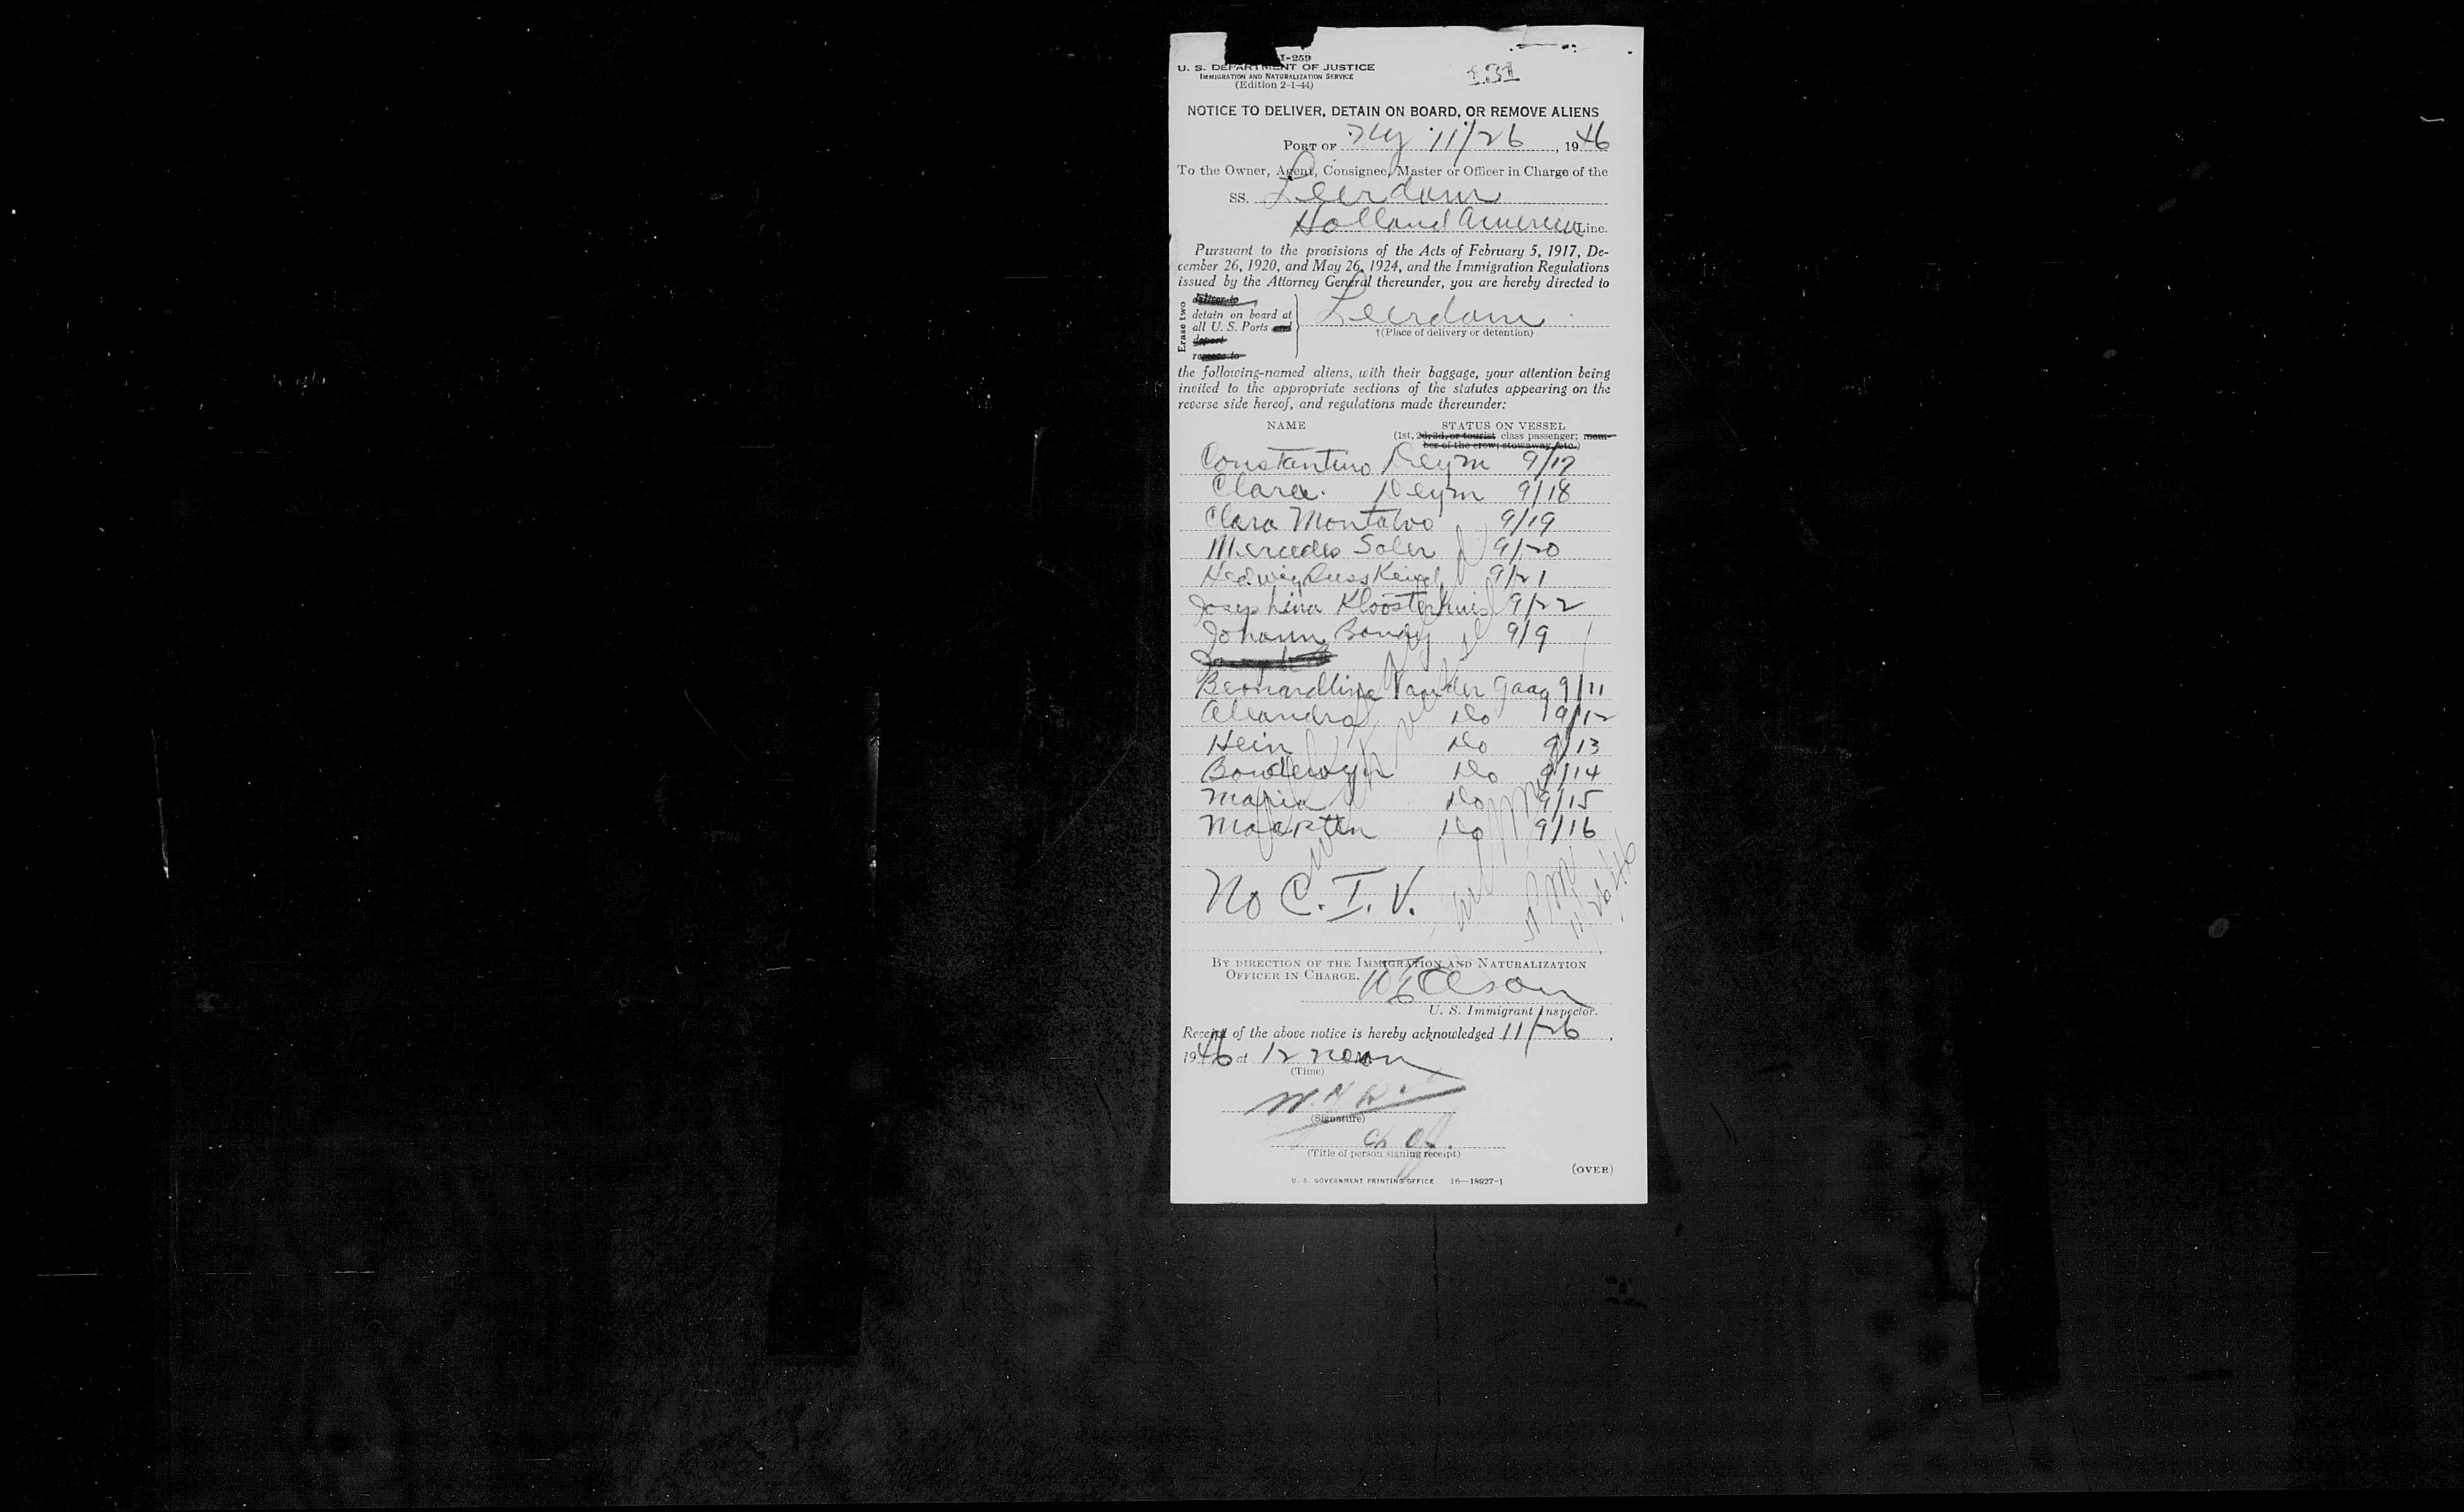 I-259
U. S. DEPARTMENT OF JUSTICE
IMMIGRATION AND NATURALIZATION SERVICE
(Edition 2-1-44)
131
NOTICE TO DELIVER, DETAIN ON BOARD, OR REMOVE ALIENS
PORT OF NY 11/26, 1946
To the Owner, Agent, Consignee, Master or Officer in Charge of the
SS. Leerdam
Holland America Line.
Pursuant to the provisions of the Acts of February 5, 1917, De-
cember 26, 1920, and May 26, 1924, and the Immigration Regulations
issued by the Attorney General thereunder, you are hereby directed to
Erase two
deliver to
detain on board at
all U. S. Ports and
deport
remove to
Leerdam
†(Place of delivery or detention)
the following-named aliens, with their baggage, your attention being
invited to the appropriate sections of the statutes appearing on the
reverse side hereof, and regulations made thereunder:
NAME STATUS ON VESSEL
(1st, 2d, 3d, or tourist class passenger; mem-
ber of the crew; stowaway, etc.)
Constantino Deym 9/17
Clara Deym 9/18
Clara Montalvo 9/19
Mercedes Soler 9/20
Hedwig 9/21
Josephina Kloosterhuis 9/22
Johann Bondy 9/9
Bernardline Vander Gaag 9/11
Aleandra Do 9/12
Hein Do 9/13
Boudewyn Do 9/14
Maria Do 9/15
Maarten Do 9/16
No C. I. V.
11/26/46
BY DIRECTION OF THE IMMIGRATION AND NATURALIZATION
OFFICER IN CHARGE.
Olson
U. S. Immigrant Inspector.
Receipt of the above notice is hereby acknowledged 11/26,
1946 at 12 noon
(Time)
(Signature)
Ch Of.
(Title of person signing receipt)
(OVER)
U. S. GOVERNMENT PRINTING OFFICE 16—18927-1